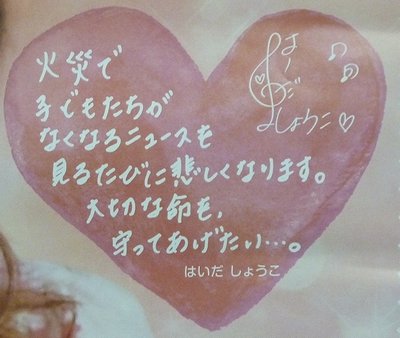 火災で
子どもたちが
なくなるニュースを
見るたびに悲しくなります。
大切な命を、
守ってあげたい…。
はいだ しょうこ
はいだ
しょうこ